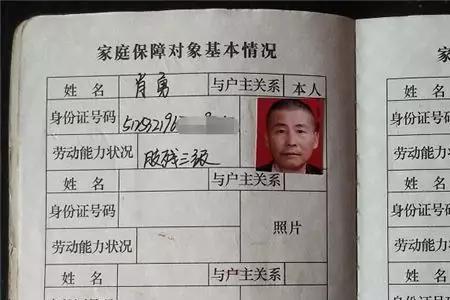 家庭保障对象基本情况
姓名 肖勇 与户主关系 本人
身份证号码
劳动能力状况 肢残三级
姓名 与户主关系
身份证号码 照片
劳动能力状况
姓名 与户主关系
身份证号码
姓
身份
劳动
姓
身份
劳动
姓
身份